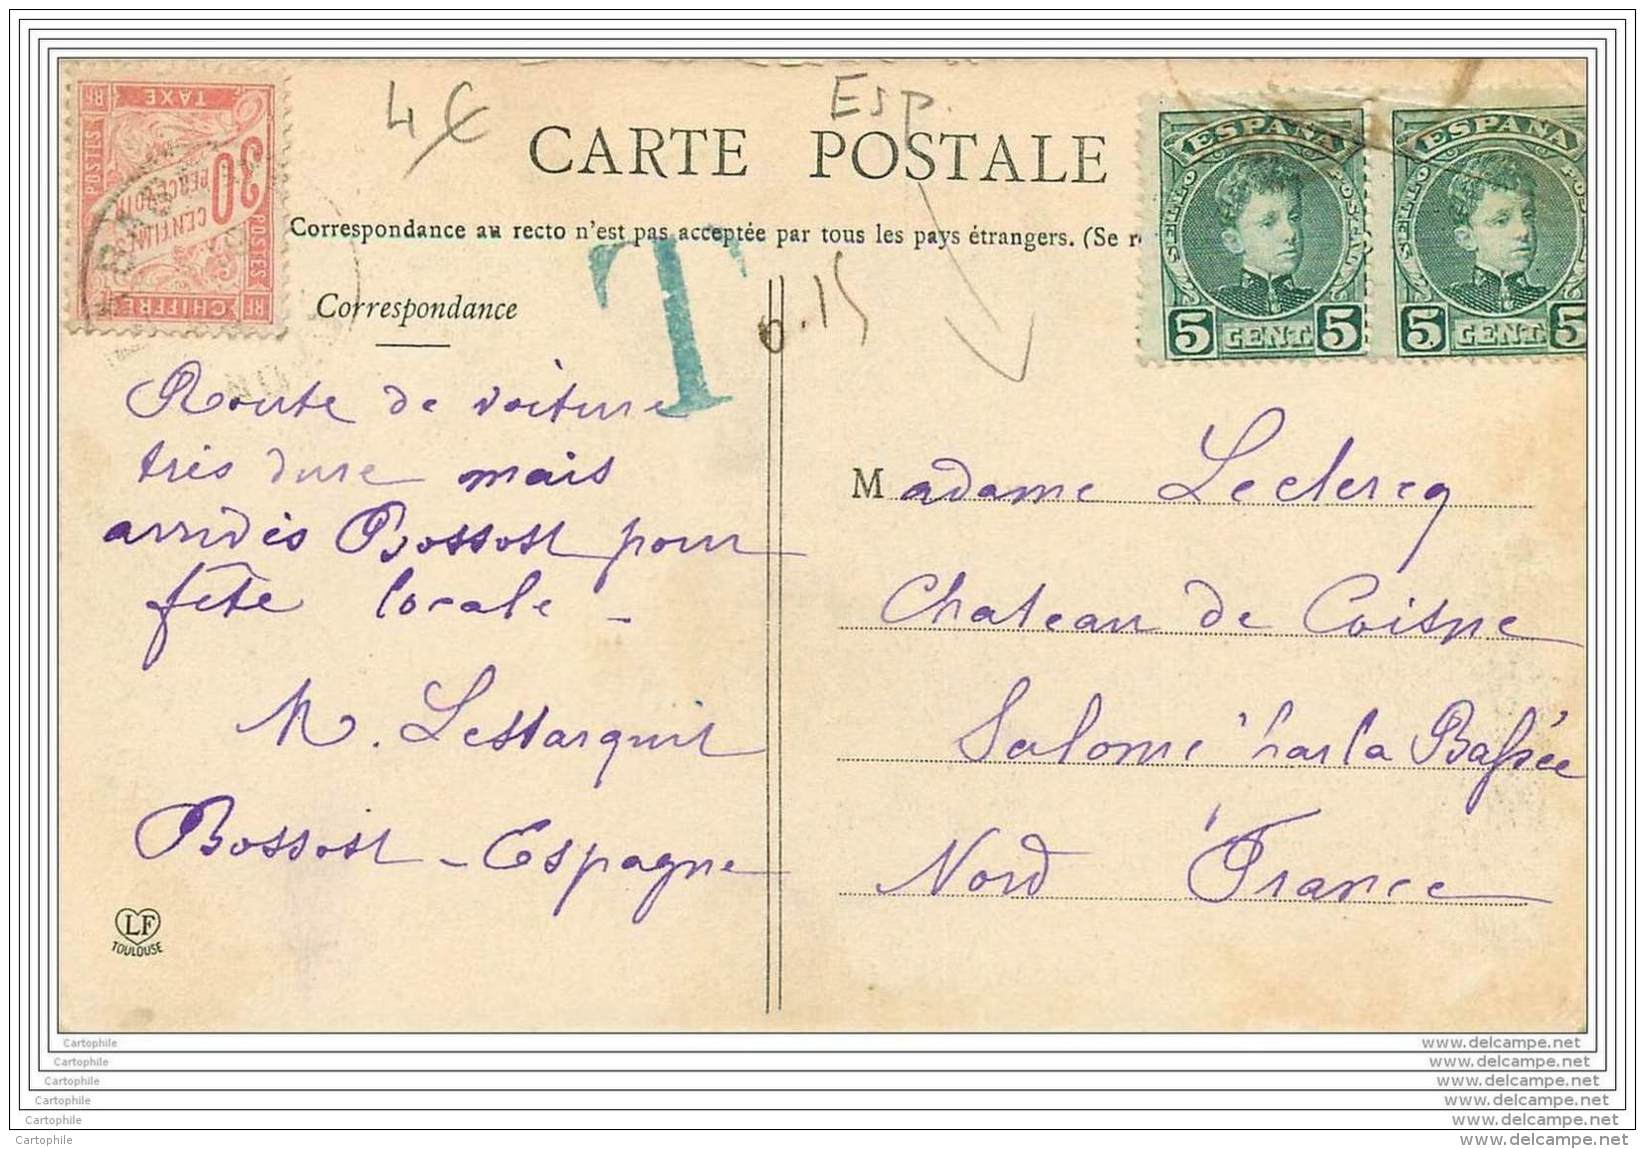 4€
Esp.
CARTE POSTALE
Correspondance au recto n'est pas acceptée par tous les pays étrangers. (Se r
Correspondance
T
0.15
POSTES
RF
TAXE
30
CENTIMES
PERCEVOIR
POSTES
CHIFFRE
RF
ESPAÑA
SELLO POSTAL
5 CENT. 5
ESPAÑA
SELLO POS
5 CENT. 5
Route de voiture
très dure mais
arrivés Bossost pour
fête locale –
M. Lestarquit
Bossost – Espagne
Madame Leclercq
Chateau de Coisne
Salomé par la Bassée
Nord France
LF
TOULOUSE
Cartophile www.delcampe.net
Cartophile www.delcampe.net
Cartophile www.delcampe.net
Cartophile www.delcampe.net
Cartophile www.delcampe.net
Cartophile www.delcampe.net